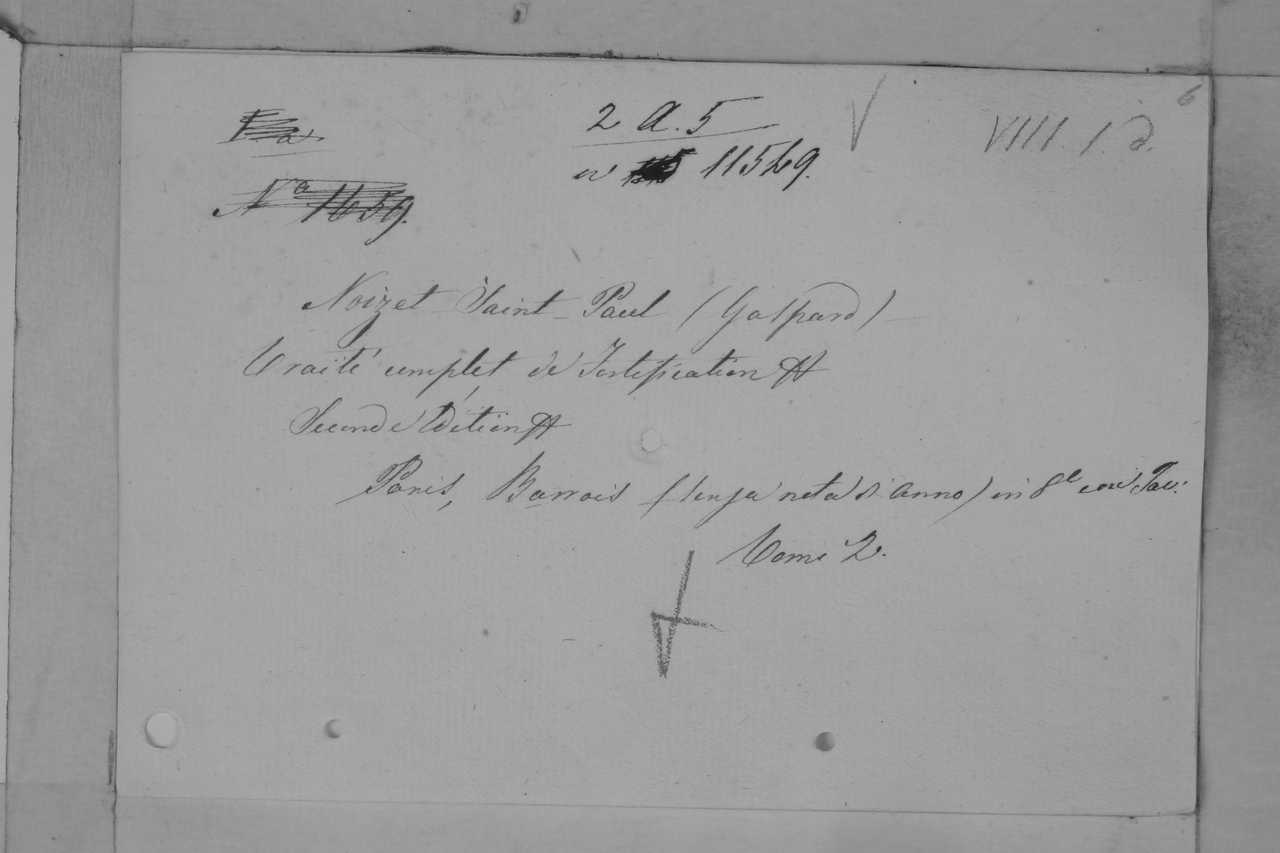 6
2 A. 5
VIII. 1. d.
11569.
N° 1659.
Noizet Saint-Paul (Gaspard)
Traité complet de Fortification
Seconde Edition
Paris, Barrois (senza nota d'anno) in 8° con Tav:
Tome 2.